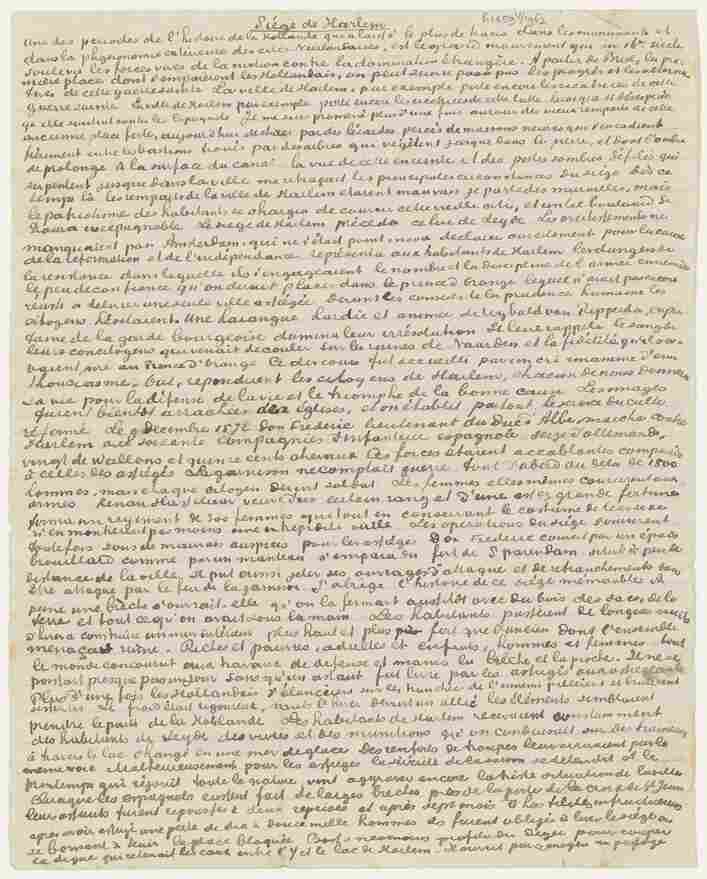 Siége de Harlem
Une des periodes de l'histoire de la Hollande qui a laissé le plus de traces dans les monuments et
dans la physionomie exterieure des cités Neerlandaises, est le grand mouvement qui au 16me siècle
souleva les forces vives de la nation contre la domination étrangère. A partir de Briel, la pre
mière place dont s'emparèrent les Hollandais, on peut suivre pas à pas les progrès et les alterna
tives de cette guerre sainte La ville de Harlem, par exemple porte encore les cicatrices de cette
guerre sainte La ville de Harlem par exemple porte encore les cicatrices de cette lutte
qu'elle soutint contre les Espagnols Je me suis promené plus d'une fois autour des vieux remparts de cette
ancienne place forte, aujourd'hui
fièrement entre les bastions par des arbres qui végètent jusque dans la pierre, et dont l'ombre
se prolonge à la surface du canal la vue de cette enceinte et des portes sombres défilés qui
serpentent jusque dans la ville me retraçait les principales circonstances du siège Dès ce
temps là les remparts de la ville de Harlem étaient mauvais je parle des murailles, mais
le patriotisme des habitants se chargea de couvrir cette
inexpugnable Le siège de Harlem précéda celui de Leyde Les avertissements ne
manquaient pas Amsterdam, qui ne s'était point encore déclarée ouvertement pour la cause
de la reformation et de l'indépendance représenta aux habitants de Harlem les dangers de
la resistance dans laquelle ils s'engageaient le nombre et la discipline de l'armée ennemie
le peu de confiance qu'on devait placer dans le prince d'Orange lequel n'avait pas encore
réussi à delivrer une seule ville assiégée Devant les conseils de la prudence humaine les
citoyens hésitaient Une harangue hardie et animée de Wybald van Ripperda, capi
taine de la garde bourgeoise domina leur irrésolution Il leur rappela le sang de
leurs concitoyens qui venait de couler sur les ruines de Naarden et la fidélité qu'ils a
vaient juré au Prince d'Orange Ce discours fut accueilli par un cri unanime d'en
thousiasme. Oui, répondirent les citoyens de Harlem, chacun de nous donnera
sa vie pour la défense de la ville et le triomphe de la bonne cause Les images
furent bientôt arrachées des églises, et on établit partout l'exercice du culte
réformé Le 9 decembre 1572 Don Frederic lieutenant du Duc d'Albe marcha contre
Harlem avec soixante compagnies d'infanterie espagnole seize d'allemands,
vingt de Wallons et quinze cents chevaux Ces forces étaient accablantes comparées
à celles des assiégés La garnison ne comptait guère tout d'abord au delà de 1800
hommes, mais chaque citoyen devint soldat Les femmes elles mêmes coururent aux
armes Kenau Hasselaer veuve d'un certain rang et d'une assez grande fortune
forma un regiment de 300 femmes qui tout en conservant le costume de leur sexe
n'en montrèrent pas moins une intrépidité virile Les operations du siège s'ouvrirent
toutefois sous de mauvais auspices pour les assiégés Don Frederic couvert par un épais
brouillard comme par un manteau s'empara du fort de Sparendam situé à peu de
distance de la ville, il put aussi jeter ses ouvrages d'attaque et de retranchements sans
être attaqué par le feu de la garnison J'abrège l'histoire de ce siège mémorable A
peine une brèche s'ouvrait elle qu'on la fermait aussitôt avec du bois des sacs de la
terre et tout ce qu'on avait sous la main Les habitants passèrent de longues nuits
d'hiver à construire un mur intérieur plus haut et plus fort que l'ancien dont l'ensemble
menaçait ruine. Riches et pauvres, adultes et enfants, hommes et femmes tout
le monde concourut aux travaux de défense et mania la bêche et la pioche. Il ne se
passait presque pas un jour sans qu'un assaut fut livré par les assiégés ou assiégeants
Plus d'une fois les Hollandais s'élancèrent sur les tranchées de l'ennemi
Le froid était rigoureux, mais l'hiver devint un allié Les éléments semblaient
prendre le parti de la Hollande Les habitants de Harlem recevaient constamment
des habitants de Leyde des vivres et des munitions qu'on conduisait sur des traineaux
à travers le lac changé en une mer de glace Des renforts de troupes leur arrivaient par la
même voie Malheureusement pour les assiégés la
printemps qui réjouit toute la nature vint aggraver encore la triste situation de la ville
Quoique les espagnols eussent fait de larges brèches près de la porte de la croix et de St Jean
leurs assauts furent repoussés à deux reprises et après sept mois
après avoir essuyé une perte de dix à douze mille hommes ils furent obligés à lever le siège ou
se bornant à tenir la place bloquée du Siège pour couper
la digue qui retenait les eaux entre l'Y et le lac de Harlem Il ouvrit par ce moyen un passage